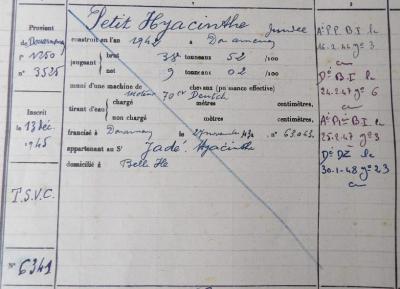 Petit Hyacinthe
Provient
de Douarnenez
f° 1250
n° 3525
Inscrit
le 13 déc.
1945
T.S.V.C.
N° 6341
construit en l'an 1942 à Douarnenez
jaugeant
brut 38 tonneaux 52 /100
net 9 tonneaux 02 /100
muni d'une machine de chevaux (puissance effective)
moteur 70 cv Deutsch
tirant d'eau
chargé mètres centimètres,
non chargé mètres centimètres,
francisé à Douarnenez le 27 novembre 43 n° 63063
appartenant au Sr Jadé Hyacinthe
domicilié à Belle Ile
A° P.P. B.I. le
16.2.46 g° 3
D° B.I. le
24.2.47 g° 6
25.2.47 g° 3
D° DZ le
30.1.48 g° 23